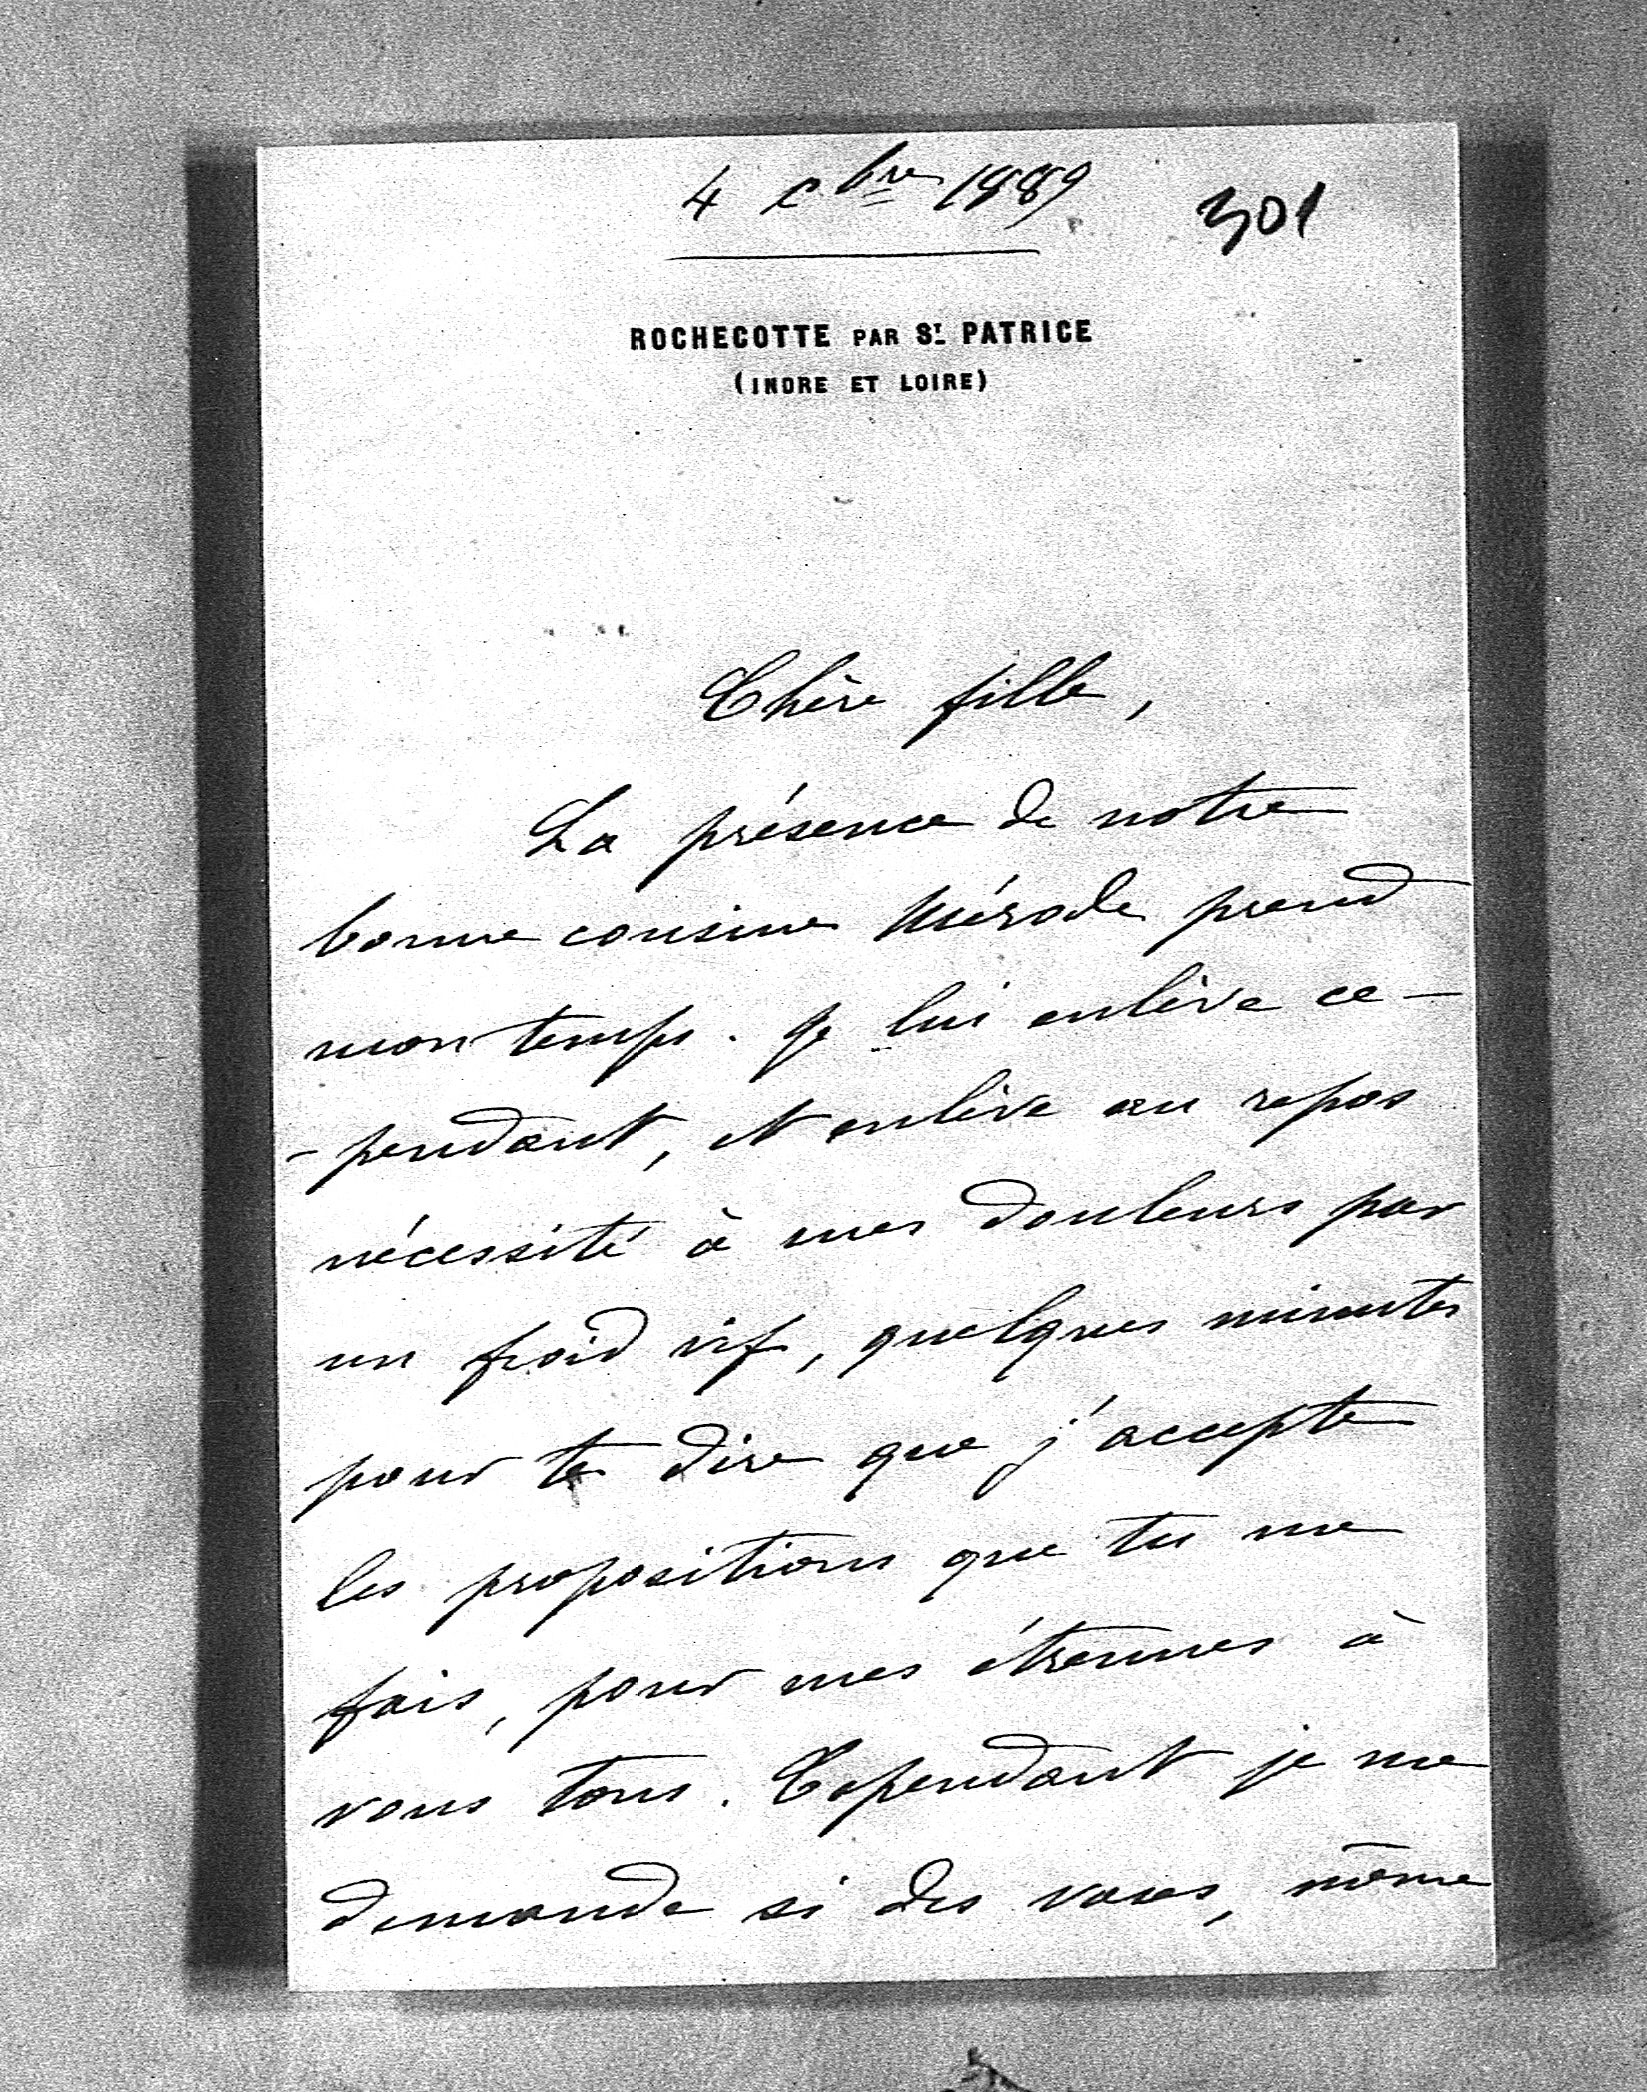 4 Xbre 1889
301
ROCHECOTTE PAR ST. PATRICE
(INDRE ET LOIRE)
Chère fille,
La présence de notre
bonne cousine Mérode prend
mon temps. Je lui enlève ce-
-pendant, et enlève au repos
nécessité à mes douleurs par
un froid vif, quelques minutes
pour te dire que j'accepte
les propositions que tu me
fais, pour mes étrennes à
vous tous. Cependant je me
demande si des vases, même